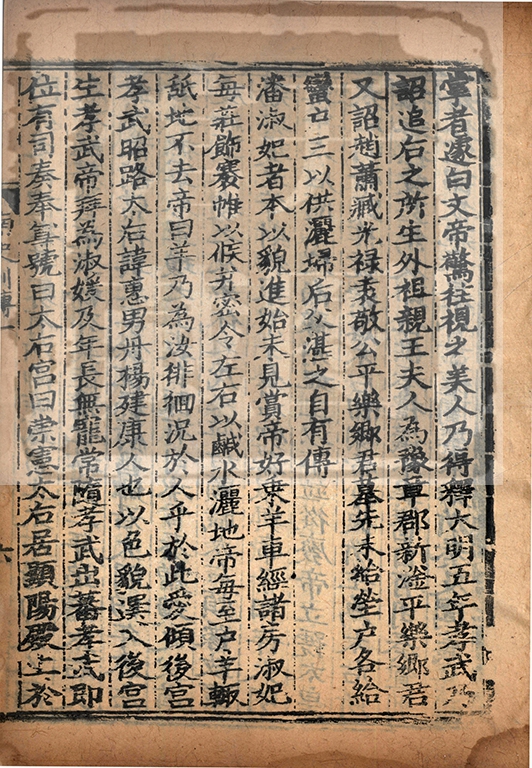 掌者遽白文帝驚往視之美人乃得釋大明五年孝武乃
詔追后之所生外祖親王夫人為豫章郡新淦平樂鄉君
又詔趙蕭臧光禄袁敬公平樂鄉君墓先未給塋户各給
蠻户三以供灑埽后父湛之自有傳
潘淑妃者本以貌進始未見賞帝好乗羊車經諸房淑妃
每莊飾褰帷以候并密令左右以鹹水灑地帝每至户羊輒
舐地不去帝曰羊乃為汝徘徊況於人乎於此愛傾後宮
孝武昭路太后諱惠男丹楊建康人也以色貌選入後宮
生孝武帝拜為淑媛及年長無寵常隨孝武出蕃孝武即
位有司奏奉尊號曰太后宮曰崇憲太后居顯陽殿上於